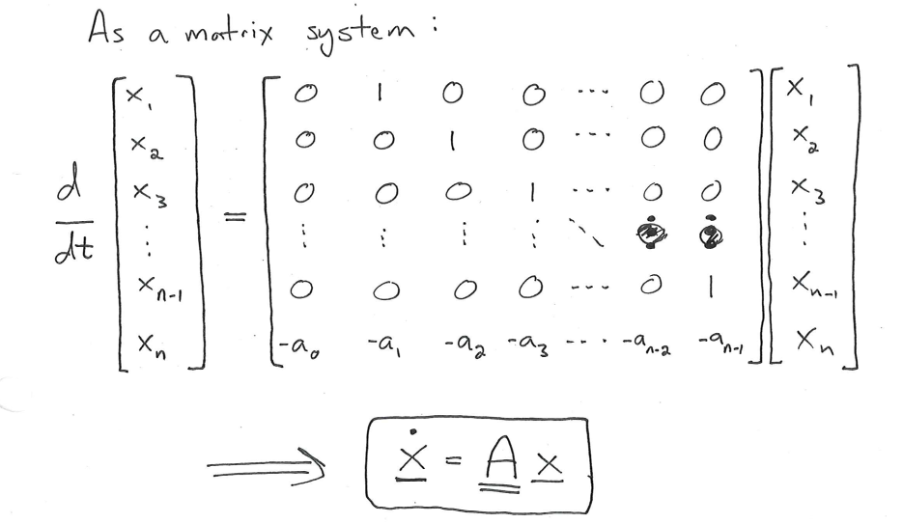 As a matrix system:
d/dt [x₁ x₂ x₃ ⋮ xₙ₋₁ xₙ] = [0 1 0 0 ⋯ 0 0
0 0 1 0 ⋯ 0 0
0 0 0 1 ⋯ 0 0
⋮ ⋮ ⋮ ⋮ ⋱ ⋮ ⋮
0 0 0 0 ⋯ 0 1
-a₀ -a₁ -a₂ -a₃ ⋯ -aₙ₋₂ -aₙ₋₁] [x₁ x₂ x₃ ⋮ xₙ₋₁ xₙ]
⟹ ẋ = A x